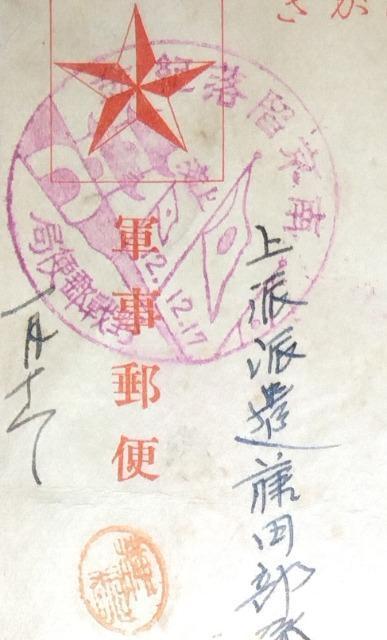 がき
南京陥落紀念
上海
12.12.17
野戰郵便局
軍事郵便
上派派遣藤田部
一月十六